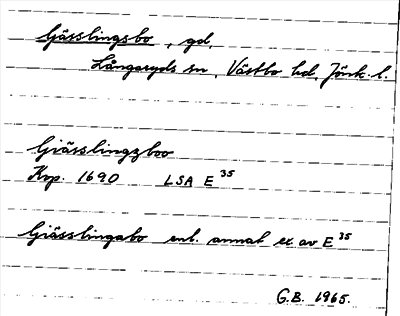 Gässlingsbo, gd,
Långaryds sn, Västbo hd, Jönk. l.
Giässlingzboo
Krp. 1690 LSA E 35
Giässlingabo enl. annat ex av E 35
G.B. 1965.